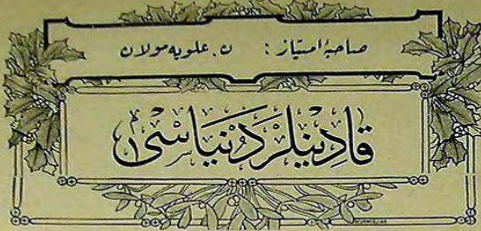 صاحبۀ امتیاز : ن. علویه مولان
قادينلر دنياسى